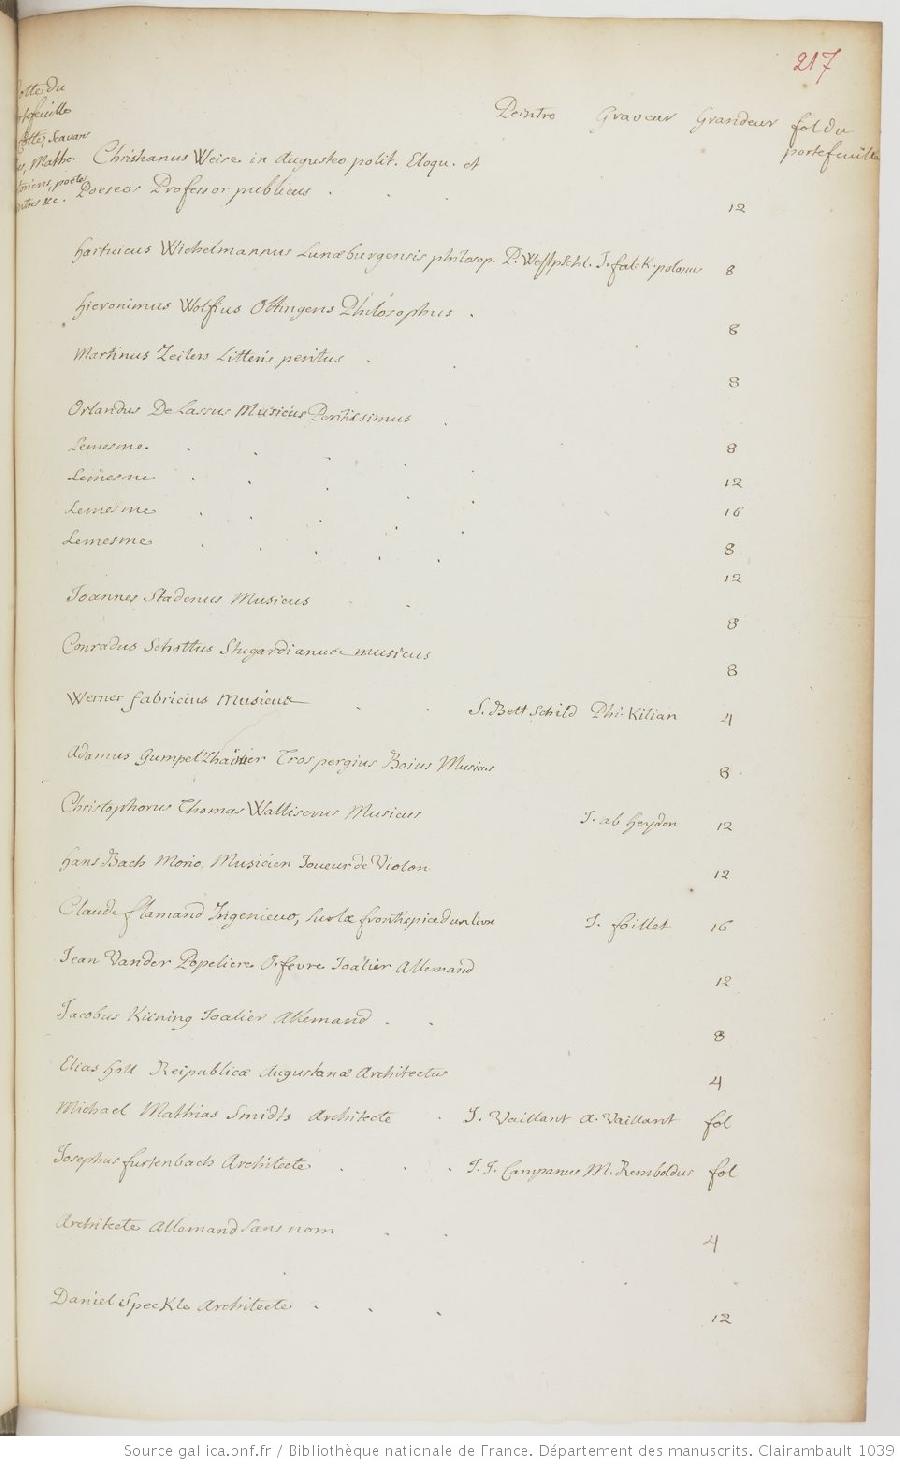 217
Peintre Graveur Grandeur fol du
portefeuille
Cotte du
portefeuille
Christianus Weise in Augusteo polit. Eloqu. et
Poeseos Professor publicus . 12
Hartuicus Wichelmannus Lunæburgensis philosop. P. Westphal. J. falck. polonus 8
Hieronimus Wolfius Ottingens Philosophus . 8
Martinus Zeilers Litteris peritus . 8
Orlandus De Lassus Musicus Peritissimus 8
Lemesme. 12
Lemesme 16
Lemesme 8
Lemesme 12
Joannes Stadenus Musicus 8
Conradus Schottus Stugardianus musicus 8
Werner fabricius Musicus S. Bottschild Phi. Kilian 4
Adamus Gumpeltzhaimer Trospergius Boius Musicus 8
Christophorus Thomas Walliserus Musicus J. ab heyden 12
Hans Bach Morio, Musicien Joueur de Violon 12
Claude flamand Ingenieur, sur le frontispice d'un livre J. foillet 16
Jean Vander Popeliere Orfevre Joalier Allemand 12
Jacobus Kicning Joalier Allemand . 8
Elias Holl Reipublicæ Augustanæ Architectus 4
Michael Mathias Smidts Architecte J. Vaillant A. Vaillant fol
Josephus furtenbach Architecte J. J. Campanus M. Remboldus fol
Architecte Allemand Sans nom 4
Daniel Speckle Architecte 12
Source gallica.bnf.fr / Bibliothèque nationale de France. Département des manuscrits. Clairambault 1039